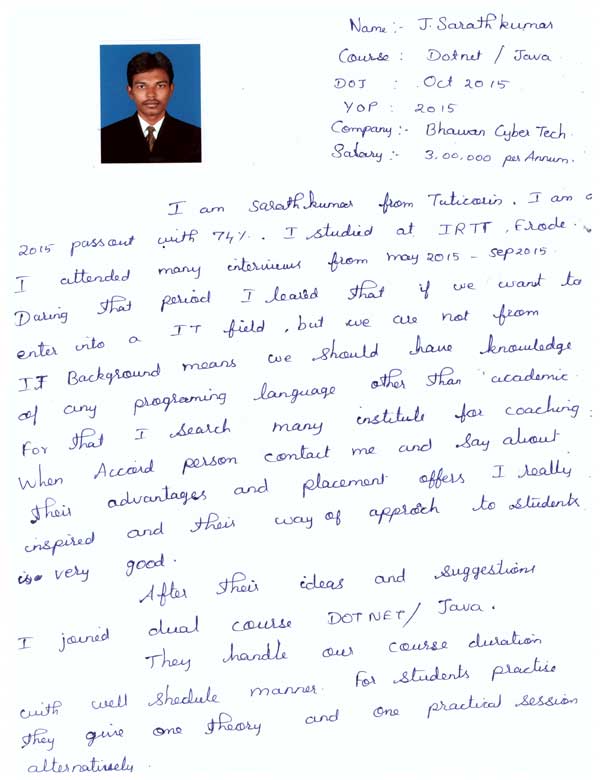 Name :- J. Sarath kumar
Course : Dotnet / Java
DOJ : Oct 2015
YOP : 2015
Company :- Bhawan Cyber Tech.
Salary :- 3,00,000 per Annum.
I am Sarath kumar from Tuticorin. I am a
2015 passout with 74%. I studied at IRTT, Erode.
I attended many interviews from may 2015 - Sep 2015.
During that period I leared that if we want to
enter into a IT field, but we are not from
IT Background means we should have knowledge
of any programing language other than academic.
For that I search many institute for coaching.
When Accord person contact me and say about
their advantages and placement offers I really
inspired and their way of approch to students
is very good.
After their ideas and suggestions
I joined dual course DOTNET/ Java.
They handle our course duration
with well shedule manner. For students practise
they give one theory and one practical session
alternatively.